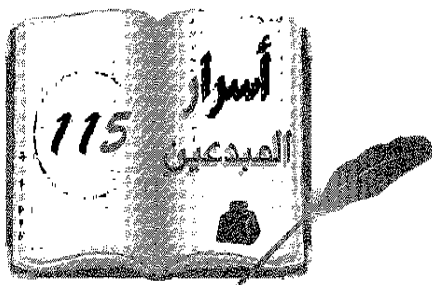 115
أسرار
المبدعين